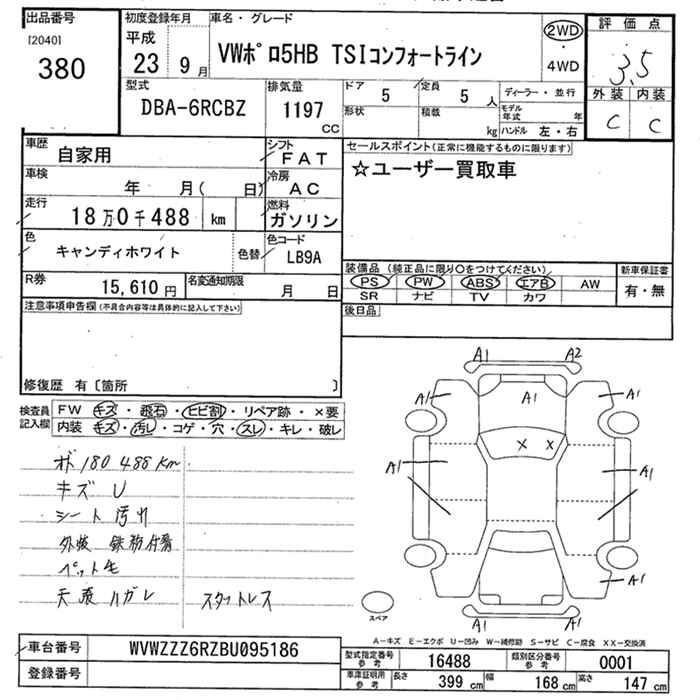 出品番号
[2040]
380
初度登録年月
平成
23 9 月
車名・グレード
VWポロ5HB TSIコンフォートライン
2WD
・
4WD
評価点
3.5
外装 内装
C C
型式
DBA-6RCBZ
排気量
1197
CC
ドア 5
定員 5 人
形状
積載 kg
ディーラー・並行
モデル年式 年
ハンドル 左・右
車歴 自家用
シフト FAT
車検 年 月( 日)
冷房 AC
走行 18万0千488 km
燃料 ガソリン
色 キャンディホワイト
色替
色コード LB9A
R券 15,610円
名変通知期限 月 日
セールスポイント(正常に機能するものに限ります)
☆ユーザー買取車
装備品 (純正品に限り○をつけてください)
新車保証書
PS PW ABS エアB AW
SR ナビ TV カワ
有・無
後日品
注意事項申告欄(不具合内容等は具体的に記入して下さい)
修復歴 有〔箇所 〕
検査員記入欄
FW キズ・飛石・ヒビ割・リペア跡・×要
内装 キズ・汚レ・コゲ・穴・スレ・キレ・破レ
オド 180 488 km
キズ U
シート 汚れ
ペット毛
天張 ハガレ スタットレス
A1 A2
A1 A1 A1
X X
A1 A1
A1 A1
A1 A1
スペア
A-キズ E-エクボ U-凹み W-補修跡 S-サビ C-腐食 XX-交換済
車台番号 WVWZZZ6RZBU095186
登録番号
型式指定番号 参考 16488
類別区分番号 参考 0001
車庫証明用 参考 長さ 399 cm 幅 168 cm 高さ 147 cm